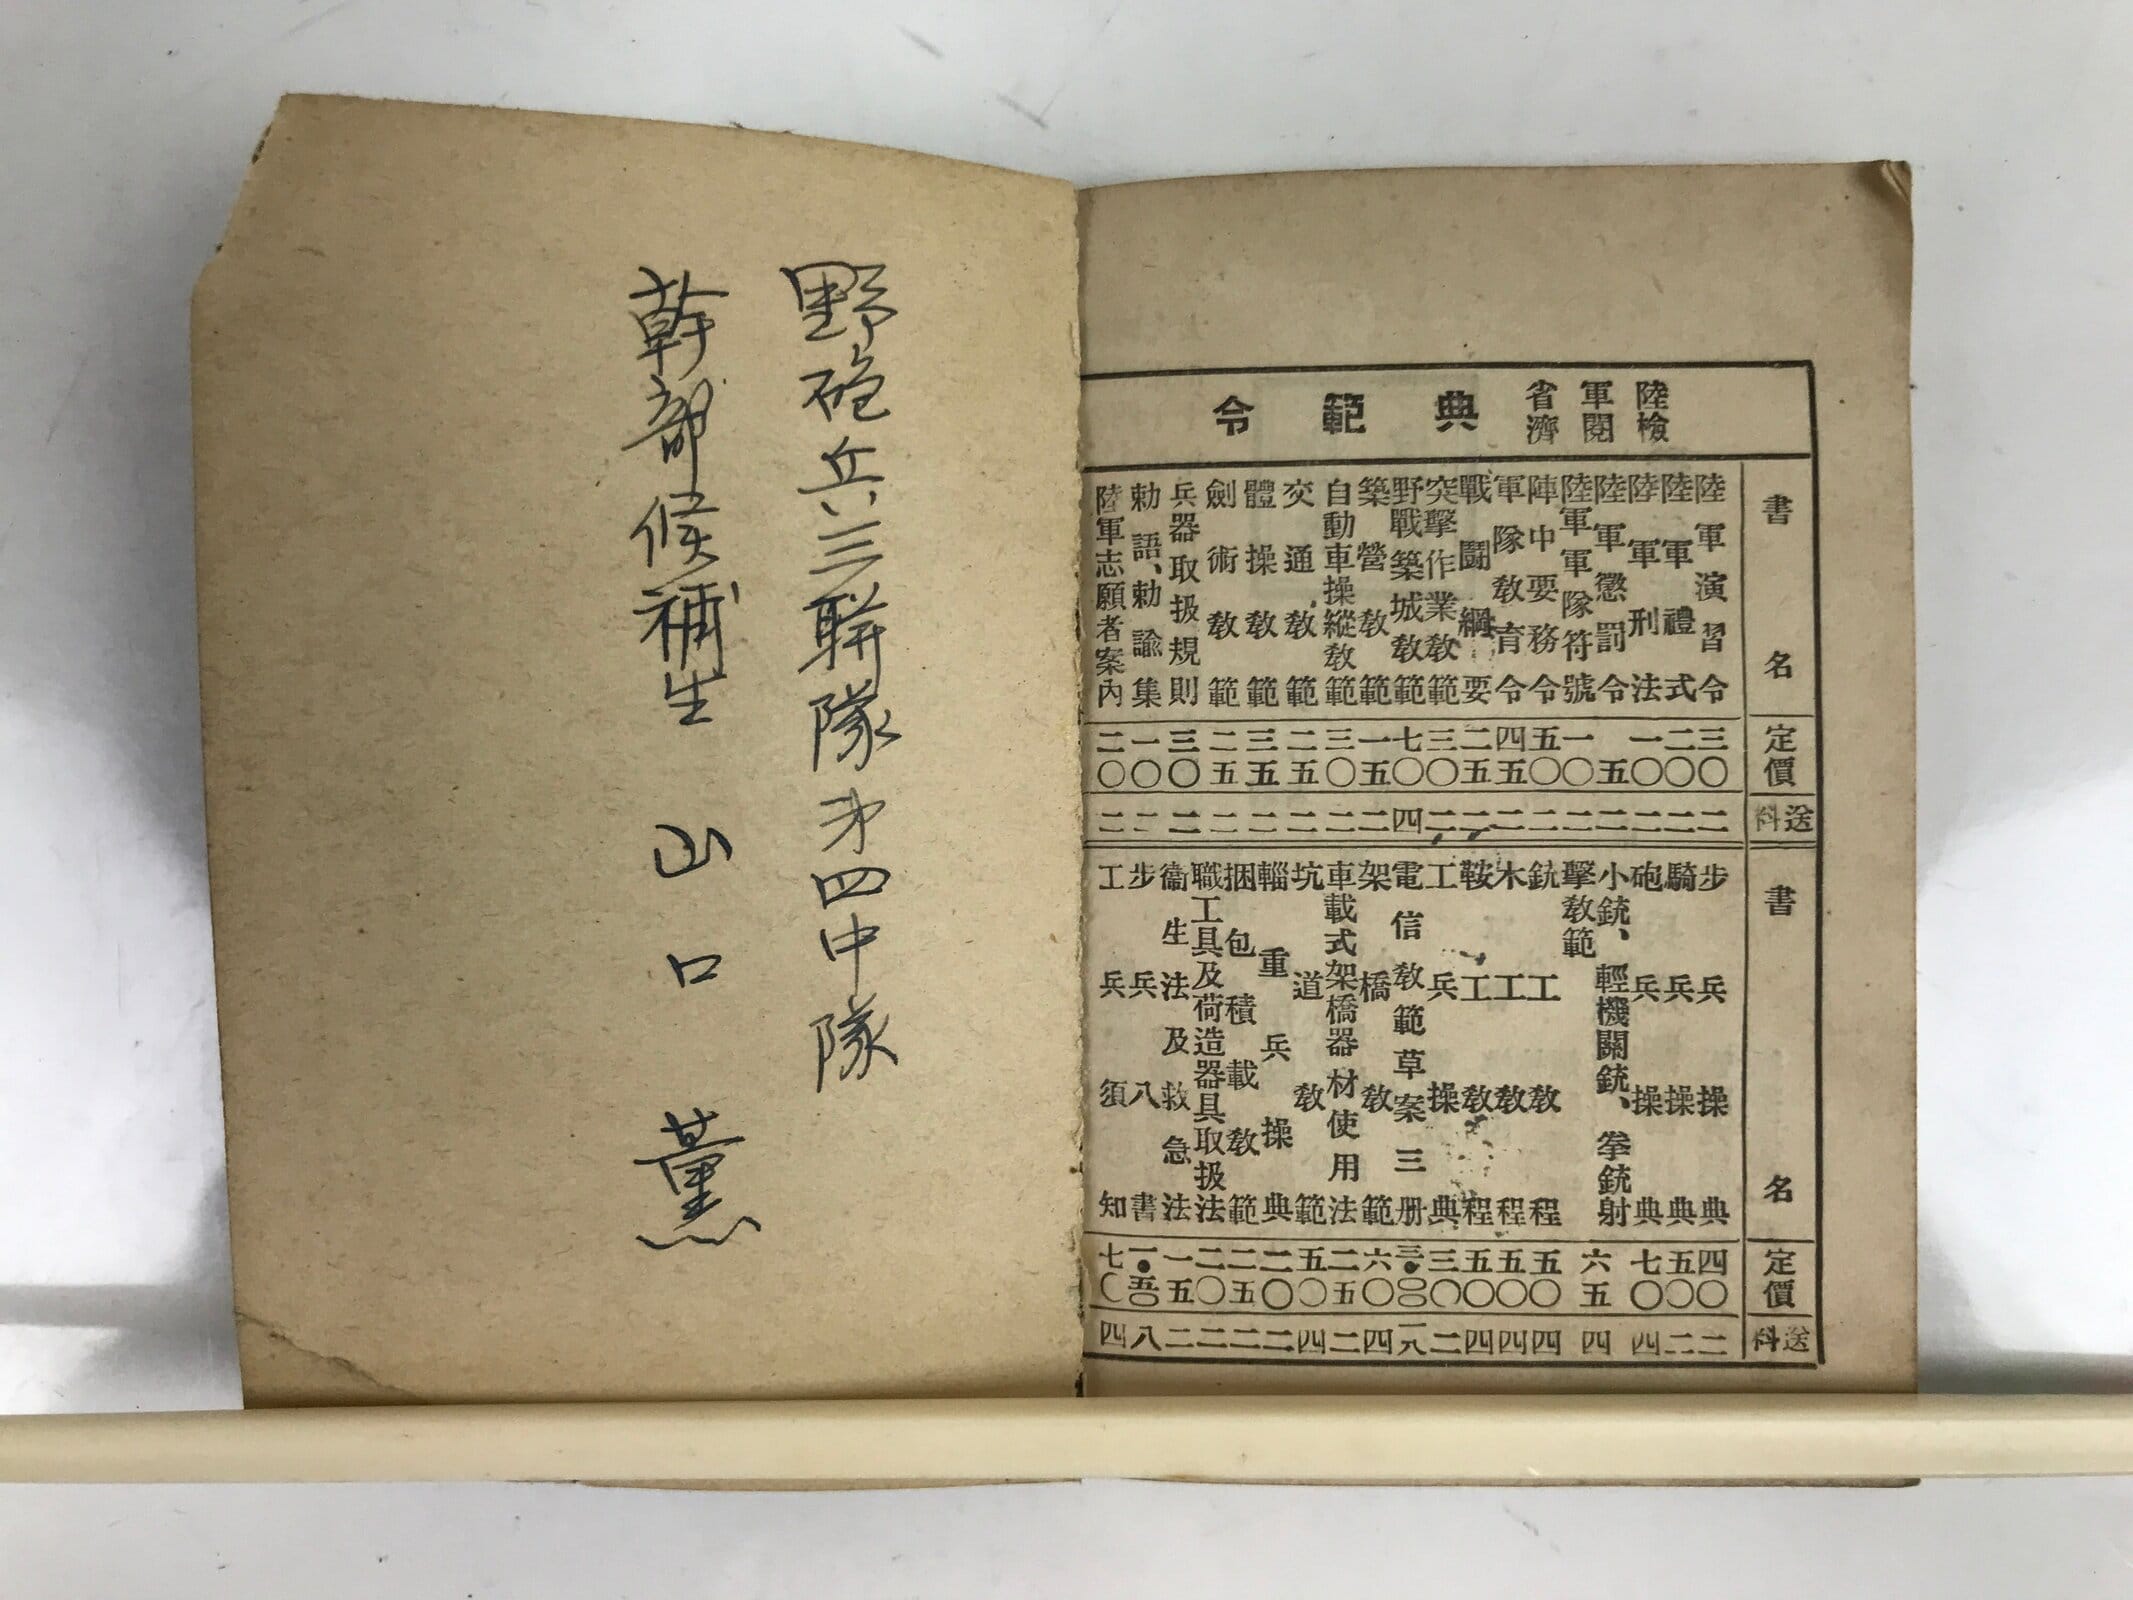 陸軍省檢閱濟 典範令
書名 定價 送料
陸軍演習令 三〇 二
陸軍禮式 二〇 二
陸軍刑法 一〇 二
陸軍懲罰令 五 二
陸軍軍隊符號 一〇 二
陣中要務令 五〇 二
軍隊敎育令 四五 二
戰鬪綱要 二五 二
突擊作業敎範 三〇 二
野戰築城敎範 七〇 四
築營敎範 一五 二
自動車操縱敎範 三〇 二
交通敎範 二五 二
體操敎範 三五 二
劍術敎範 二五 二
兵器取扱規則 三〇 二
勅語、勅諭集 一〇 二
陸軍志願者案內 二〇 二
書名 定價 送料
步兵操典 四〇 二
騎兵操典 五〇 二
砲兵操典 七〇 四
小銃、輕機關銃、拳銃射
擊敎範 六五 四
銃工敎程 五〇 四
木工敎程 五〇 四
鞍工敎程 五〇 四
工兵操典 三〇 二
電信敎範草案三册 三・〇〇 一八
架橋敎範 六〇 四
車載式架橋器材使用法 二五 二
坑道敎範 五〇 四
輜重兵操典 二〇 二
捆包積載敎範 二五 二
職工具及荷造器具取扱法 二〇 二
衞生法及救急法 一五 二
步兵八書 一・五〇 八
工兵須知 七〇 四
野砲兵三聯隊才四中隊
幹部候補生 山口薫